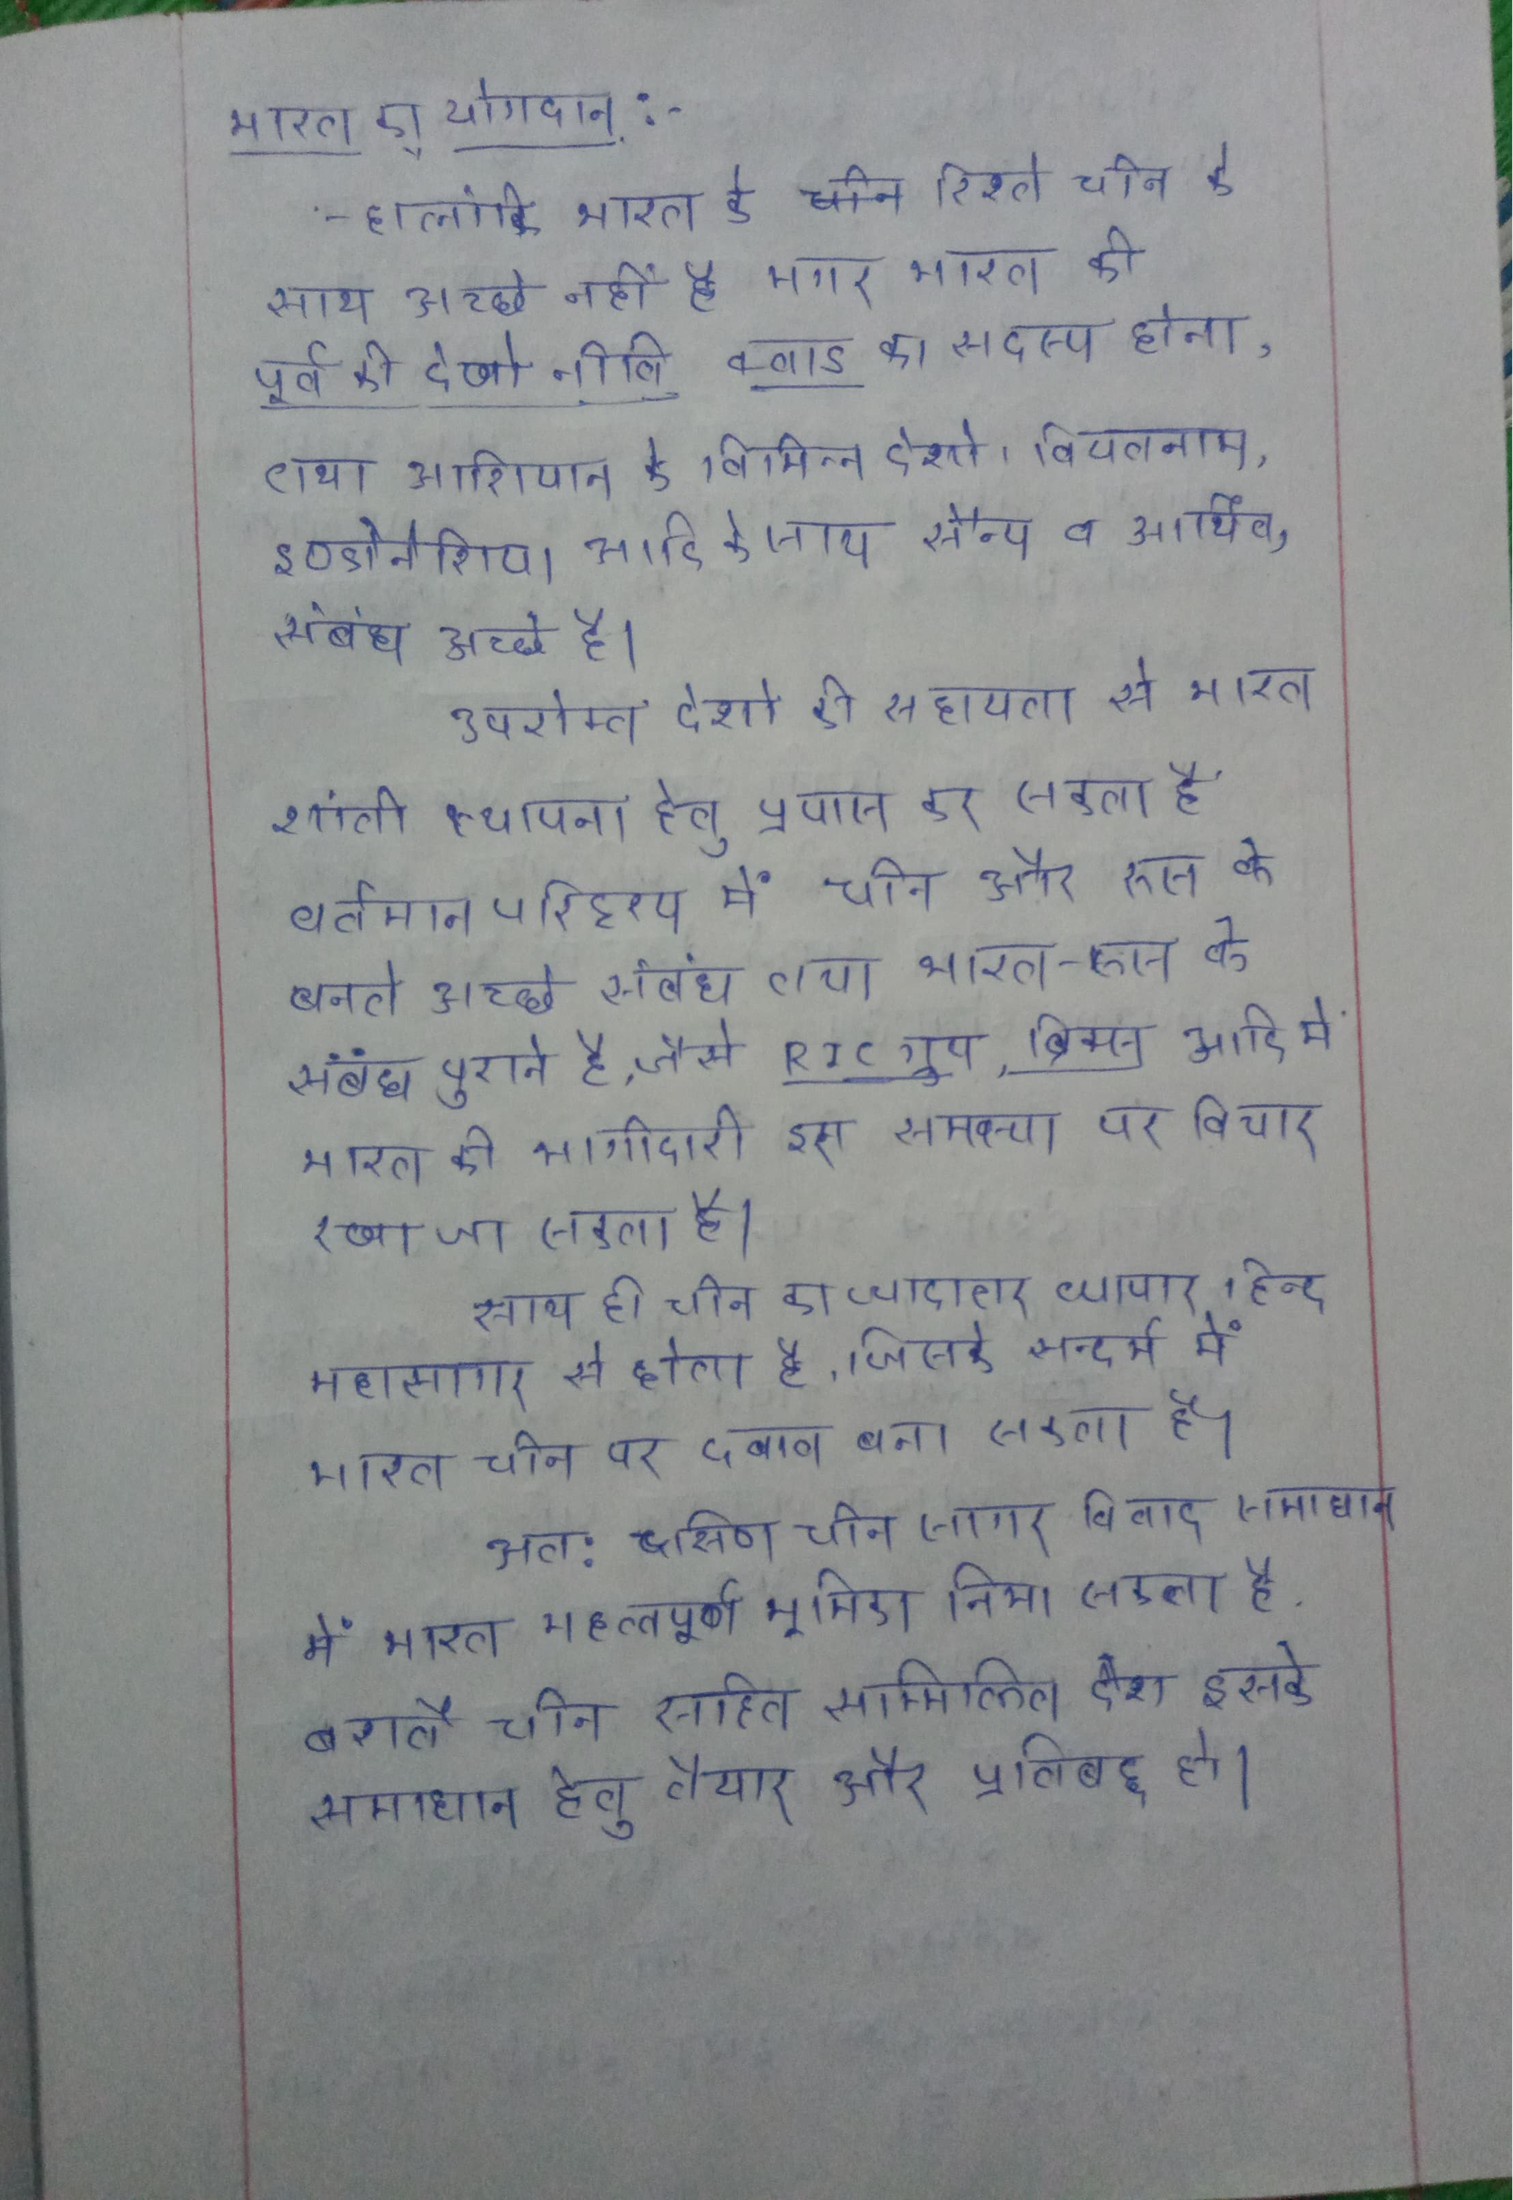 भारत का योगदान :-
:- हालांकि भारत के चीन रिश्ते चीन के
साथ अच्छे नहीं है मगर भारत की
पूर्व की देखो नीति क्वाड का सदस्य होना,
तथा आशियान के विभिन्न देशो। वियतनाम,
इण्डोनेशिया आदि के साथ सैन्य व आर्थिक,
संबंध अच्छे है।
उपरोक्त देशो की सहायता से भारत
शांती स्थापना हेतु प्रयास कर सकता है
वर्तमान परिदृश्य में चीन और रूस के
बनते अच्छे संबंध तथा भारत-रूस के
संबंध पुराने है, जैसे RIC ग्रुप, ब्रिक्स आदि में
भारत की भागीदारी इस समस्या पर विचार
रखा जा सकता है।
साथ ही चीन का ज्यादातर व्यापार हिन्द
महासागर से होता है, जिसके सन्दर्भ में
भारत चीन पर दबाव बना सकता है।
अतः दक्षिण चीन सागर विवाद समाधान
में भारत महत्तपूर्ण भूमिका निभा सकता है.
बशर्ते चीन सहित सम्मिलित देश इसके
समाधान हेतु तैयार और प्रतिबद्ध हो।